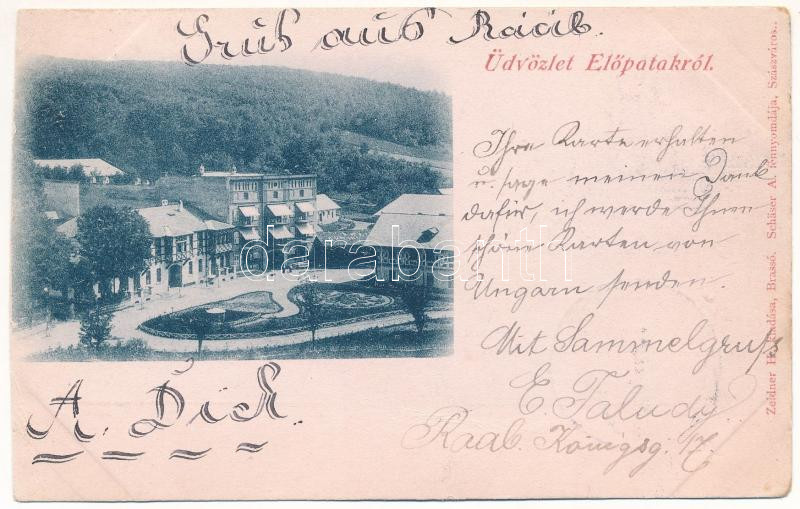 Gruß aus Raab.
Üdvözlet Előpatakról.
Ihre Karte erhalten
u. sage meinen Dank
dafür, ich werde Ihnen
schöne Karten von
Ungarn senden.
Mit Sammelgruß
E. Faludy
Raab. Königsg. 17.
A. Dick.
Zeidner H. kiadása, Brassó. Schäser A. fénnyomdája, Szászváros.
darabanth